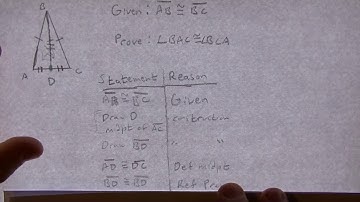 Given: AB ≅ BC
B
Prove: ∠BAC ≅ ∠BCA
A D C
Statement Reason
AB ≅ BC Given
Draw D
midpt of AC construction
Draw BD " "
AD ≅ DC Def midpt
BD ≅ BD Ref Pro